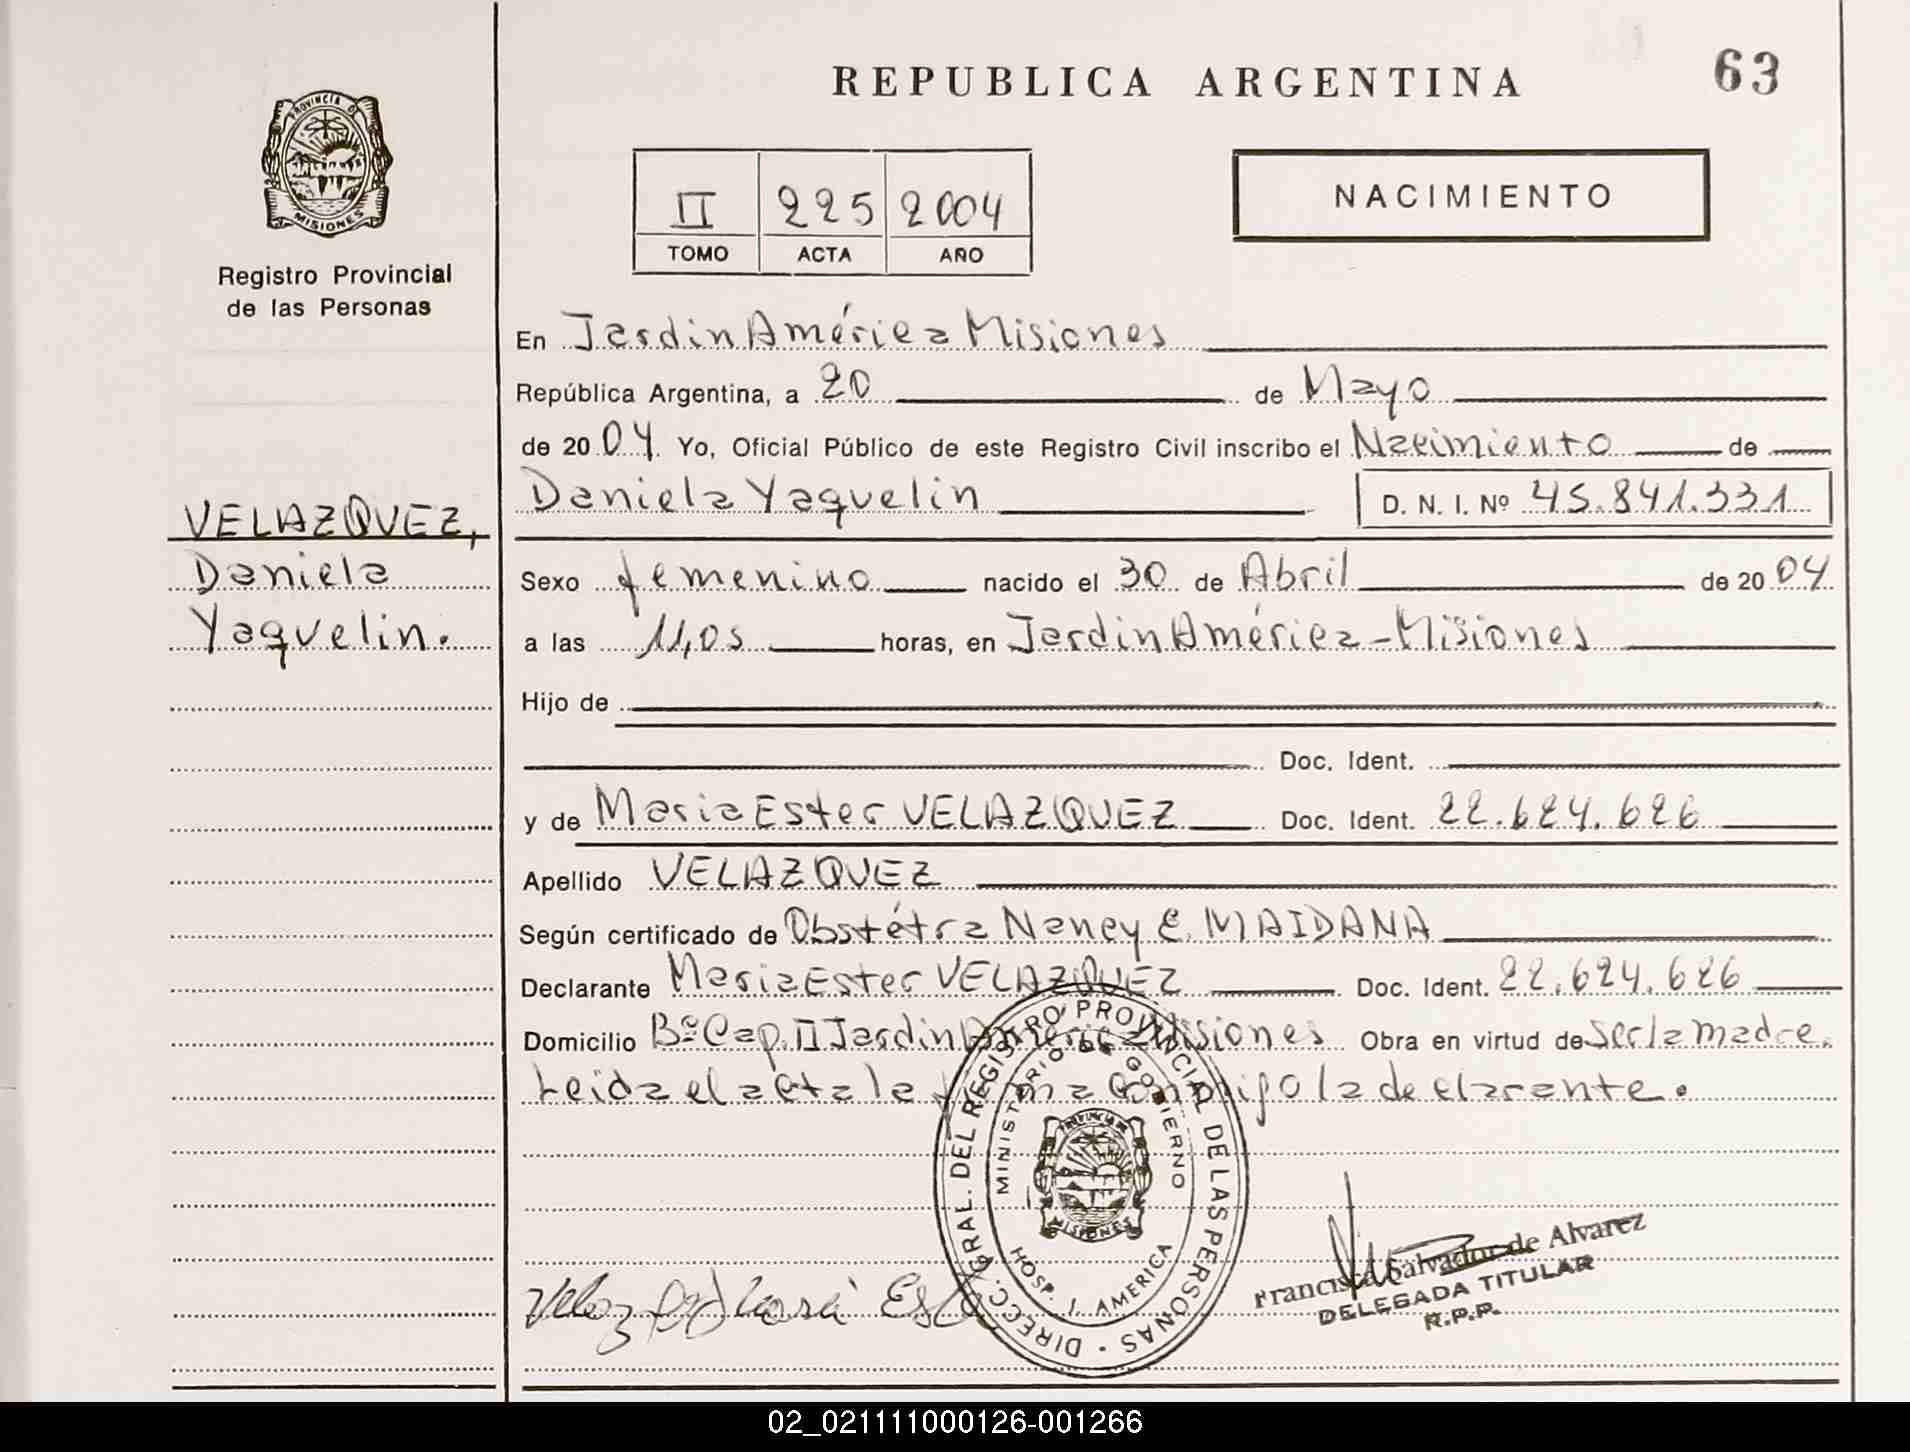 REPUBLICA ARGENTINA
63
PROVINCIA DE
MISIONES
Registro Provincial
de las Personas
II 225 2004
TOMO ACTA AÑO
NACIMIENTO
En Jardin América Misiones
República Argentina, a 20 de Mayo
de 20 04 Yo, Oficial Público de este Registro Civil inscribo el Nacimiento de
Daniela Yaquelin D. N. I. Nº 45.841.331
VELAZQUEZ,
Daniela
Yaquelin.
Sexo femenino nacido el 30 de Abril de 20 04
a las 11,05 horas, en Jardin América - Misiones
Hijo de
Doc. Ident.
y de Maria Ester VELAZQUEZ Doc. Ident. 22.624.626
Apellido VELAZQUEZ
Según certificado de Obstétra Nancy E. MAIDANA
Declarante Maria Ester VELAZQUEZ Doc. Ident. 22.624.626
Domicilio Bº Cap. II Jardin América Misiones Obra en virtud de ser la madre.
Leida el acta la firma conmigo la declarante.
DIRECC. GRAL. DEL REGISTRO PROVINCIAL DE LAS PERSONAS
MINISTERIO DE GOBIERNO
PROVINCIA DE
MISIONES
HOSP. J. AMERICA
Francisca Salvador de Alvarez
DELEGADA TITULAR
R.P.P.
02_021111000126-001266